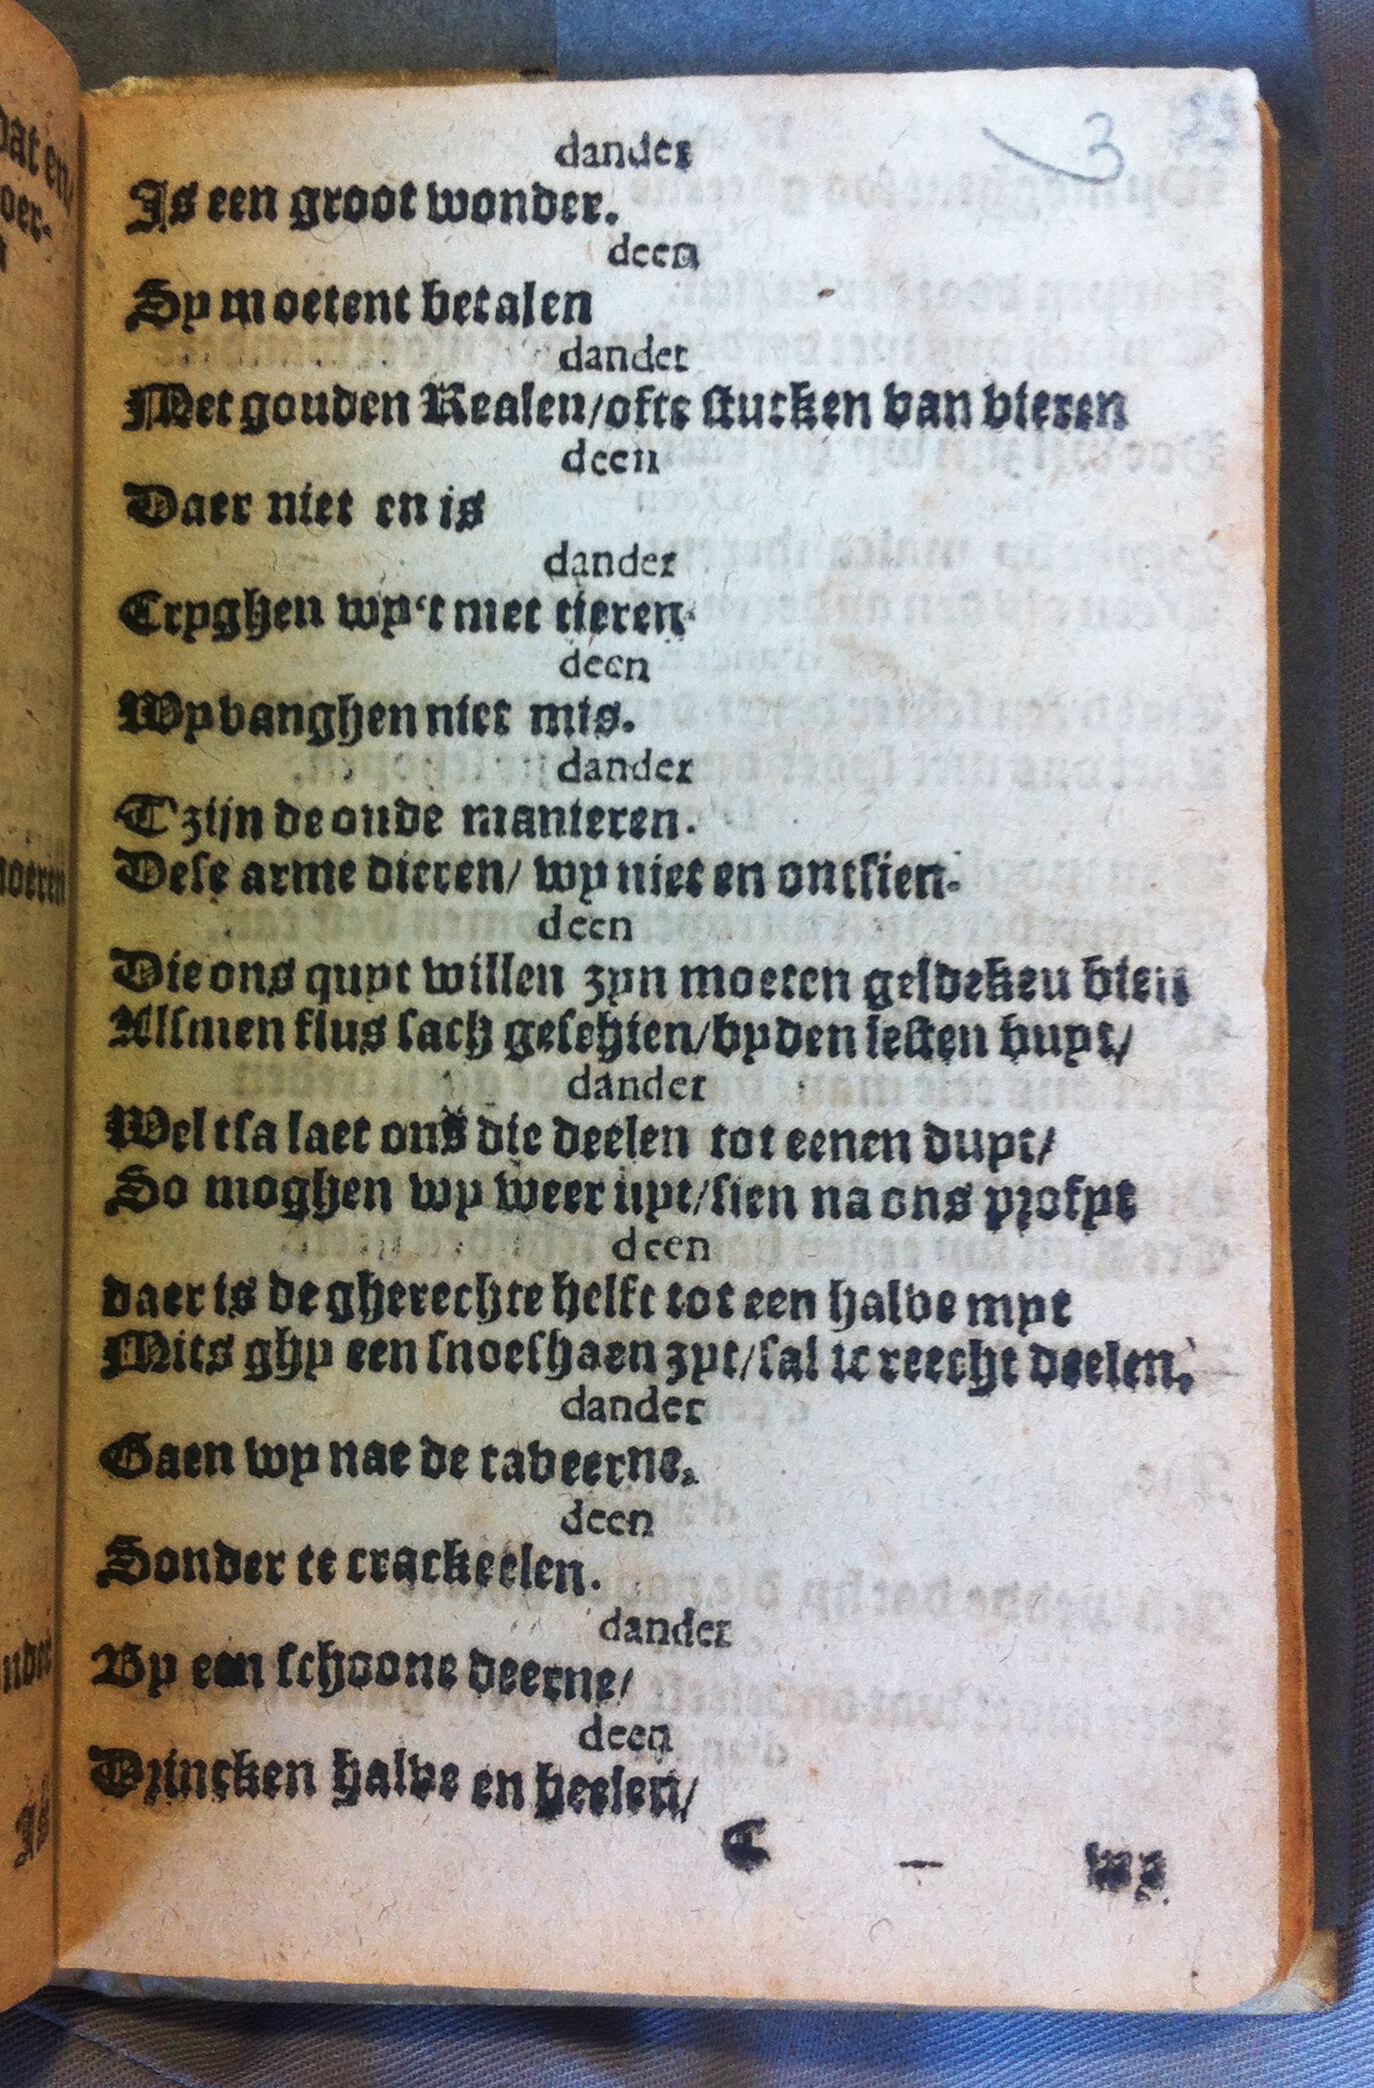 3
dander
Is een groot wonder.
deen
Sy moetent betalen
dander
Met gouden Realen/ofte stucken van vieren
deen
Daer niet en is
dander
Cryghen wy't met tieren
deen
Wy vanghen niet mis.
dander
T'zijn de oude manieren.
Dese arme dieren/ wy niet en ontsien.
deen
Die ons quyt willen zyn moeten geldekeu bien
Alsmen flus sach geschien/byden lesten buyt/
dander
Wel tsa laet ons die deelen tot eenen duyt/
So moghen wy weer uyt/sien na ons profyt
deen
daer is de gherechte helft tot een halve myt
Mits ghy een snoeshaen zyt/sal ic reecht deelen.
dander
Gaen wy nae de taveerne.
deen
Sonder te crackeelen.
dander
By een schoone deerne/
deen
Drincken halve en heelen/
C
wy